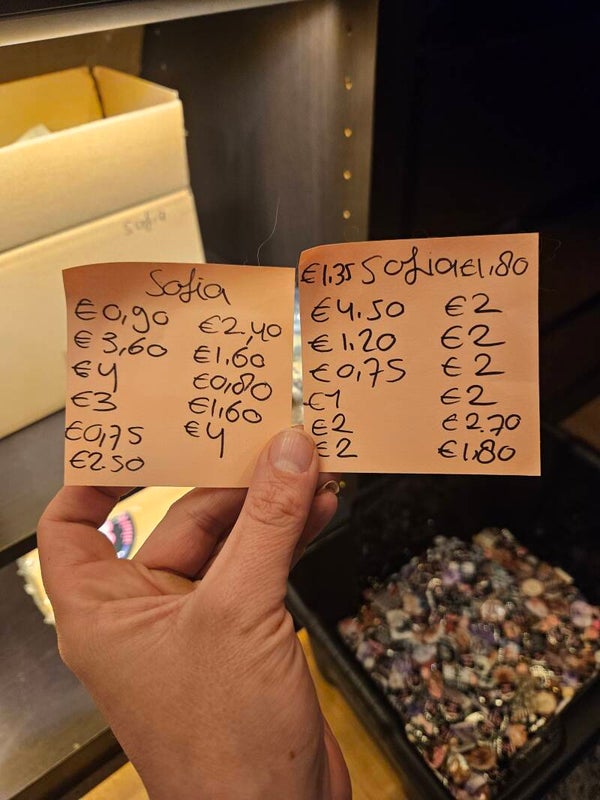 Sofia
€0,90
€3,60
€4
€3
€0,75
€2.50
€2,40
€1,60
€0,80
€1,60
€4
€1.35 Sofia €1,80
€4.50
€1.20
€0,75
€1
€2
€2
€2
€2
€2
€2
€2.70
€1,80
Sofia